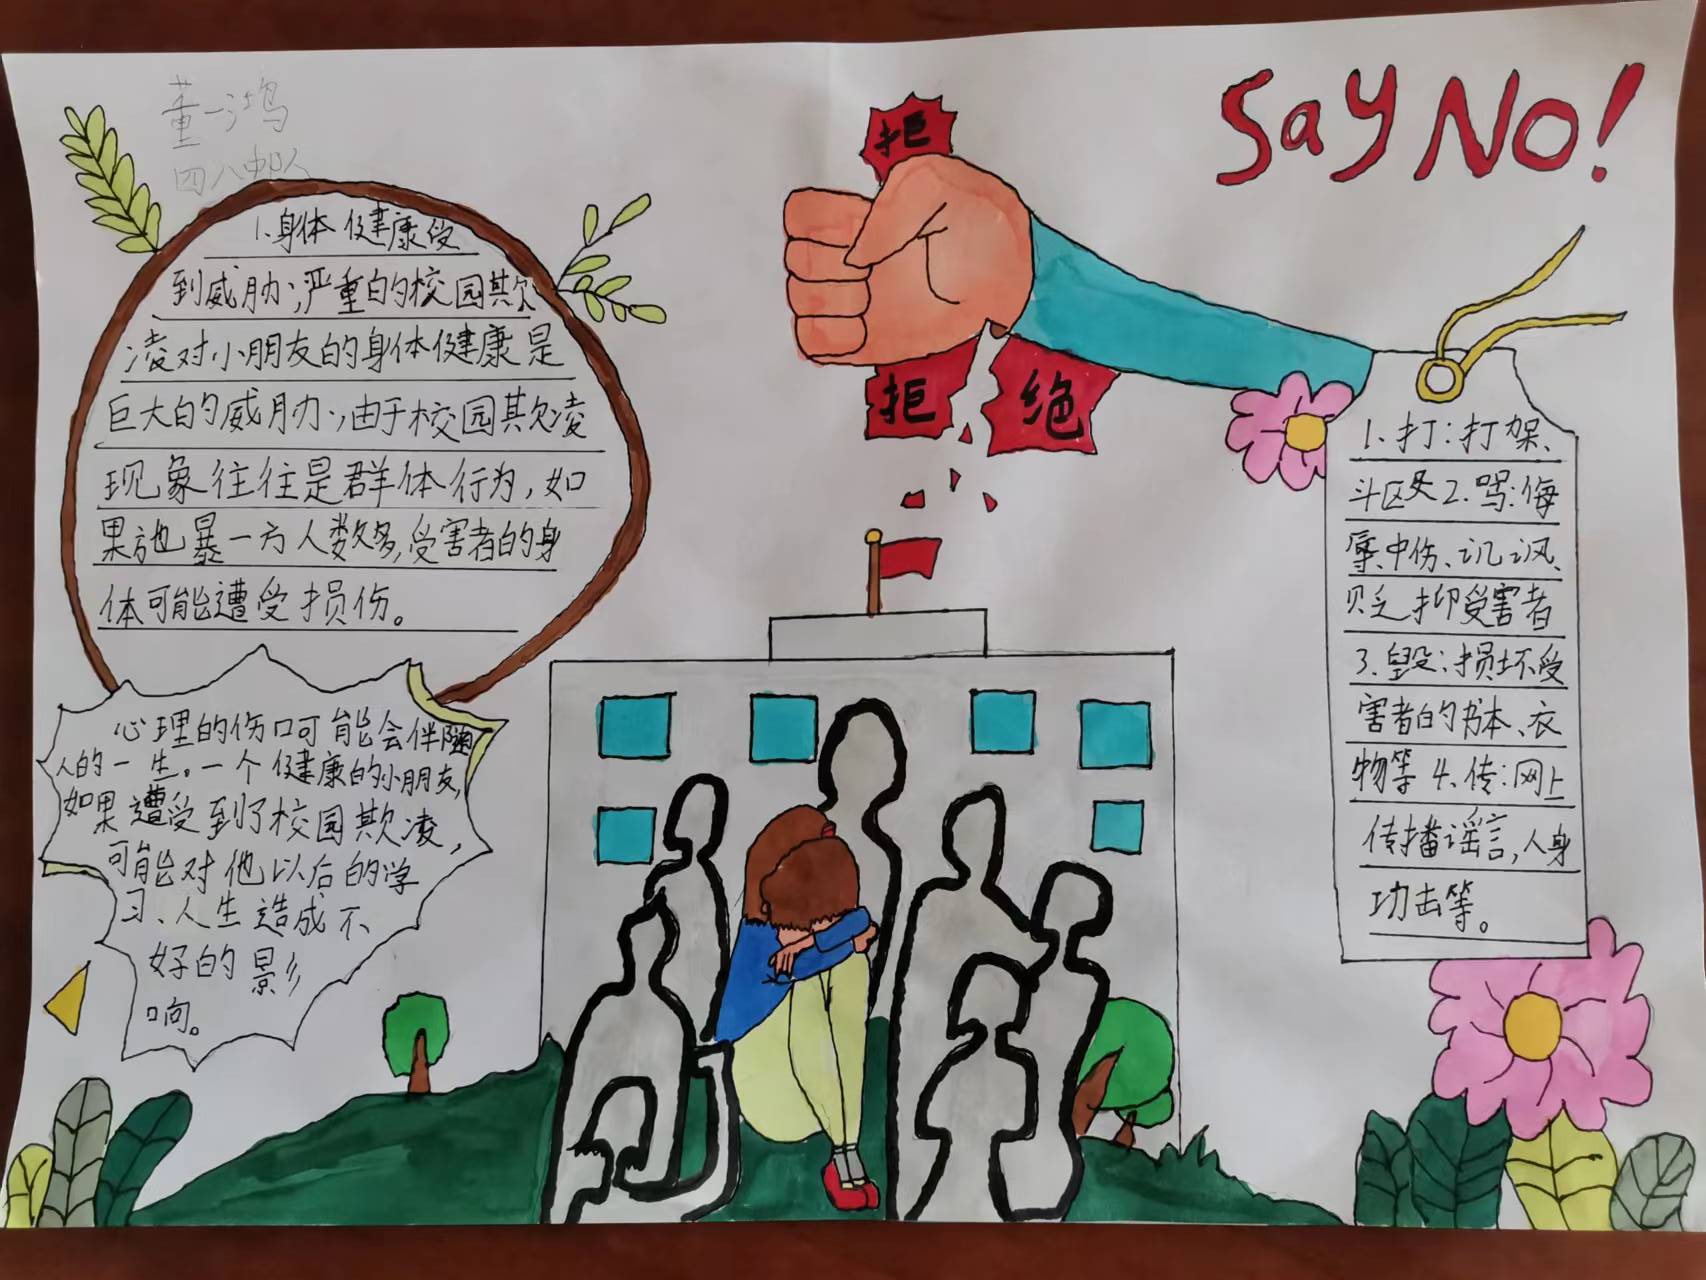 董一鸿
四八中队
Say No!
拒
拒 绝
1.身体健康受
到威胁:严重的校园欺
凌对小朋友的身体健康是
巨大的威胁,由于校园欺凌
现象往往是群体行为,如
果施暴一方人数多,受害者的身
体可能遭受损伤。
心理的伤口可能会伴随
人的一生。一个健康的小朋友,
如果遭受到了校园欺凌,
可能对他以后的学
习、人生造成不
好的影
响。
1.打:打架、
斗殴2.骂:侮
辱、中伤、讥讽、
贬抑受害者
3.毁:损坏受
害者的书本、衣
物等4.传:网上
传播谣言,人身
功击等。